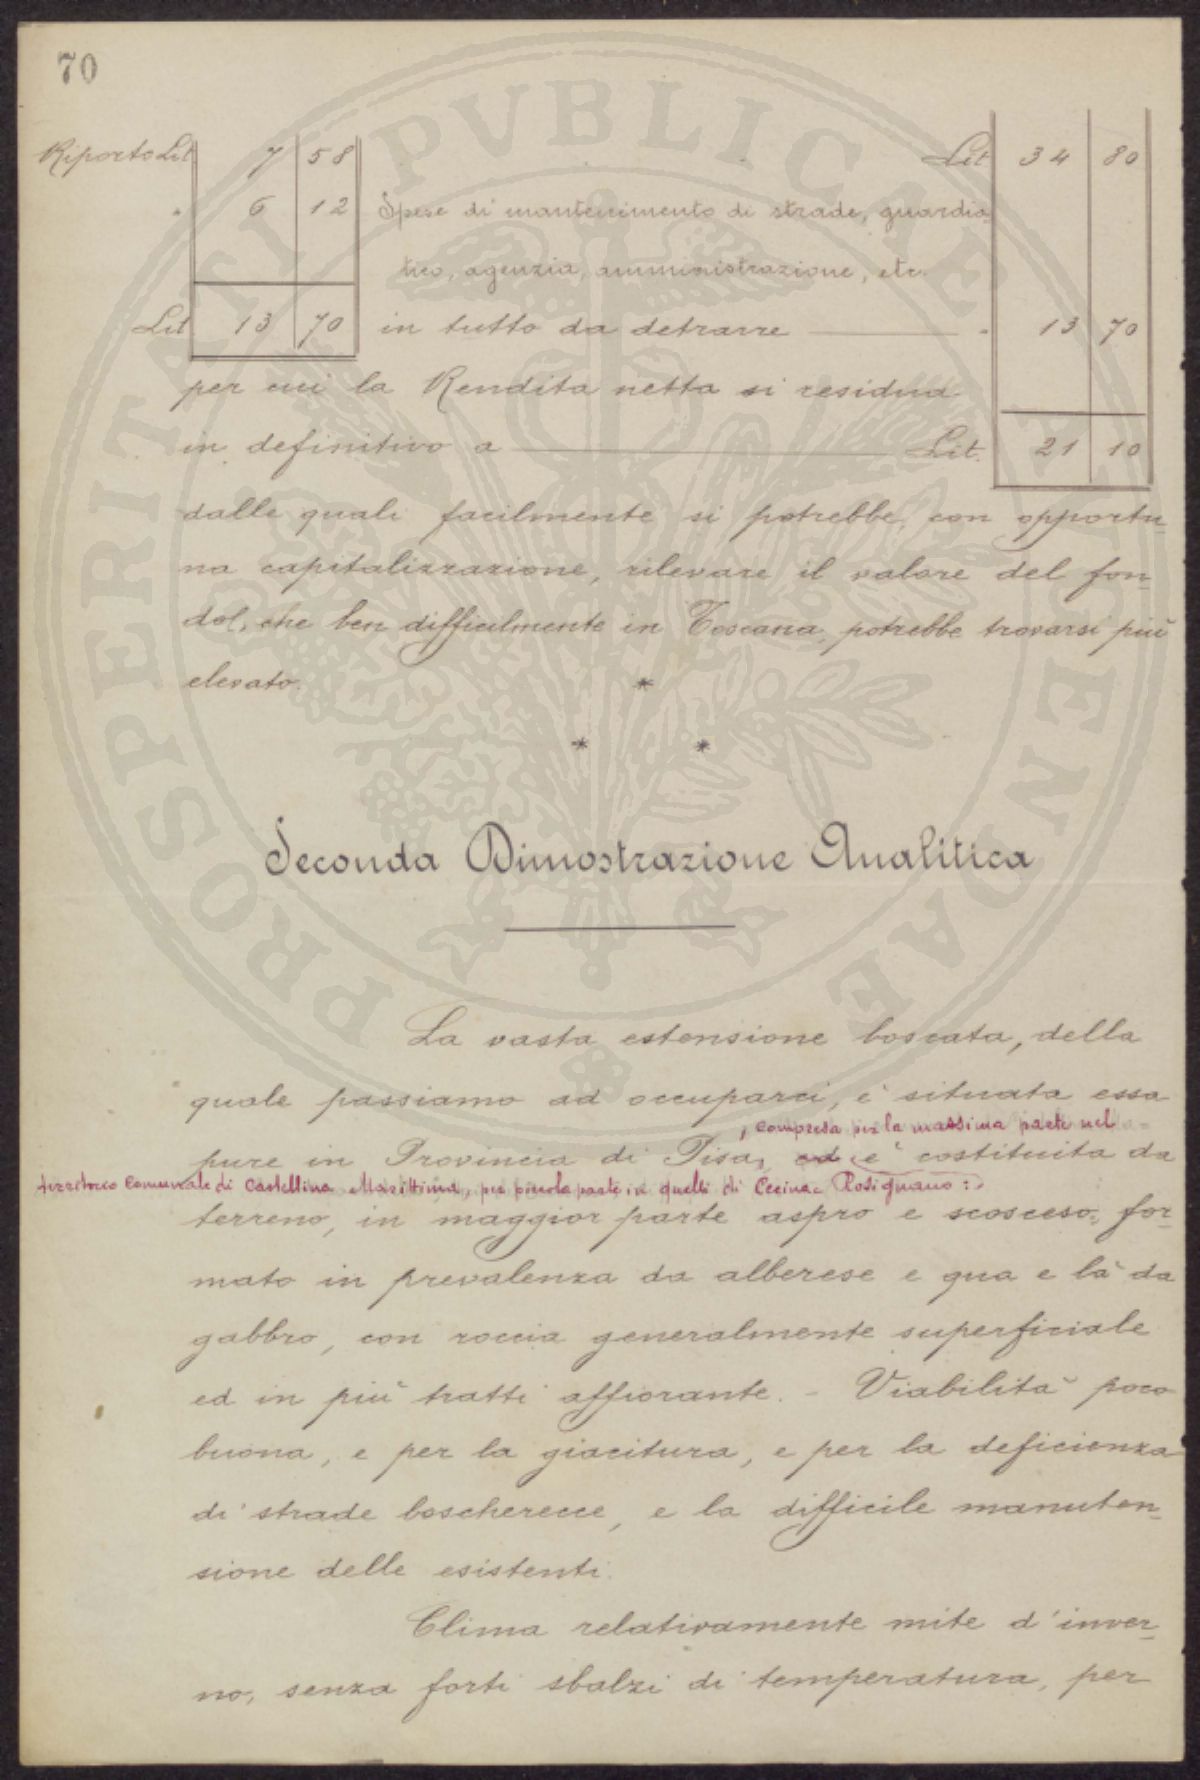 70
Riporto Lit 7 58 Lit 34 80
" 6 12 Spese di mantenimento di strade, guardia
tico, agenzia, amministrazione, etc.
Lit 13 70 in tutto da detrarre " 13 70
per cui la Rendita netta si residua
in definitivo a Lit. 21 10
dalle quali facilmente si potrebbe, con opportu-
na capitalizzazione, rilevare il valore del fon-
do, che ben difficilmente in Toscana, potrebbe trovarsi più
elevato.
*
* *
Seconda Dimostrazione Analitica
La vasta estensione boscata, della
quale passiamo ad occuparci, è situata essa
, compresa per la massima parte nel
pure in Provincia di Pisa, ed è costituita da
territorio Comunale di Castellina Marittima, per piccola parte in quelli di Cecina e Rosignano :
terreno, in maggior parte aspro e scosceso, for-
mato in prevalenza da alberese e qua e là da
gabbro, con roccia generalmente superficiale
ed in più tratti affiorante. - Viabilità poco
buona, e per la giacitura, e per la deficienza
di strade boscherecce, e la difficile manuten-
sione delle esistenti.
Clima relativamente mite d'inver-
no, senza forti sbalzi di temperatura, per
PROSPERITATI PVBLICAE AVGENDAE